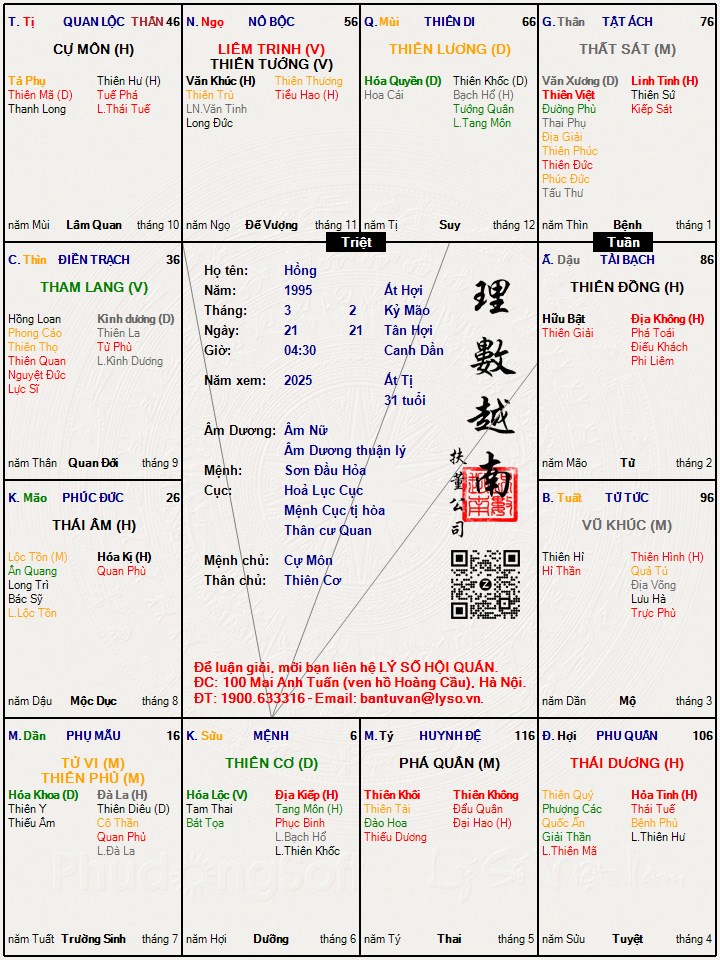 T. Tị QUAN LỘC THÂN 46
CỰ MÔN (H)
Tả Phụ
Thiên Mã (D)
Thanh Long
Thiên Hư (H)
Tuế Phá
L.Thái Tuế
năm Mùi Lâm Quan tháng 10
N. Ngọ NÔ BỘC 56
LIÊM TRINH (V)
THIÊN TƯỚNG (V)
Văn Khúc (H)
Thiên Trù
LN.Văn Tinh
Long Đức
Thiên Thương
Tiểu Hao (H)
năm Ngọ Đế Vượng tháng 11
Q. Mùi THIÊN DI 66
THIÊN LƯƠNG (D)
Hóa Quyền (D)
Hoa Cái
Thiên Khốc (D)
Bạch Hổ (H)
Tướng Quân
L.Tang Môn
năm Tị Suy tháng 12
G. Thân TẬT ÁCH 76
THẤT SÁT (M)
Văn Xương (D)
Thiên Việt
Đường Phù
Thai Phụ
Địa Giải
Thiên Phúc
Thiên Đức
Phúc Đức
Tấu Thư
Linh Tinh (H)
Thiên Sứ
Kiếp Sát
năm Thìn Bệnh tháng 1
Triệt
Tuần
C. Thìn ĐIỀN TRẠCH 36
THAM LANG (V)
Hồng Loan
Phong Cáo
Thiên Thọ
Thiên Quan
Nguyệt Đức
Lực Sĩ
Kình dương (D)
Thiên La
Tử Phù
L.Kình Dương
năm Thân Quan Đới tháng 9
Họ tên: Hồng
Năm: 1995 Ất Hợi
Tháng: 3 2 Kỷ Mão
Ngày: 21 21 Tân Hợi
Giờ: 04:30 Canh Dần
Năm xem: 2025 Ất Tị
31 tuổi
Âm Dương: Âm Nữ
Âm Dương thuận lý
Mệnh: Sơn Đầu Hỏa
Cục: Hoả Lục Cục
Mệnh Cục tị hòa
Thân cư Quan
Mệnh chủ: Cự Môn
Thân chủ: Thiên Cơ
理數越南
扶董公司
Z
Để luận giải, mời bạn liên hệ LÝ SỐ HỘI QUÁN.
ĐC: 100 Mai Anh Tuấn (ven hồ Hoàng Cầu), Hà Nội.
ĐT: 1900.633316 - Email: bantuvan@lyso.vn.
Ấ. Dậu TÀI BẠCH 86
THIÊN ĐỒNG (H)
Hữu Bật
Thiên Giải
Địa Không (H)
Phá Toái
Điếu Khách
Phi Liêm
năm Mão Tử tháng 2
K. Mão PHÚC ĐỨC 26
THÁI ÂM (H)
Lộc Tồn (M)
Ân Quang
Long Trì
Bác Sỹ
L.Lộc Tồn
Hóa Kị (H)
Quan Phù
năm Dậu Mộc Dục tháng 8
B. Tuất TỬ TỨC 96
VŨ KHÚC (M)
Thiên Hỉ
Hỉ Thần
Thiên Hình (H)
Quả Tú
Địa Võng
Lưu Hà
Trực Phù
năm Dần Mộ tháng 3
M. Dần PHỤ MẪU 16
TỬ VI (M)
THIÊN PHỦ (M)
Hóa Khoa (D)
Thiên Y
Thiếu Âm
Đà La (H)
Thiên Diêu (D)
Cô Thần
Quan Phủ
L.Đà La
năm Tuất Trường Sinh tháng 7
K. Sửu MỆNH 6
THIÊN CƠ (D)
Hóa Lộc (V)
Tam Thai
Bát Tọa
Địa Kiếp (H)
Tang Môn (H)
Phục Binh
L.Bạch Hổ
L.Thiên Khốc
năm Hợi Dưỡng tháng 6
M. Tý HUYNH ĐỆ 116
PHÁ QUÂN (M)
Thiên Khôi
Thiên Tài
Đào Hoa
Thiếu Dương
Thiên Không
Đẩu Quân
Đại Hao (H)
năm Tý Thai tháng 5
Đ. Hợi PHU QUÂN 106
THÁI DƯƠNG (H)
Thiên Quý
Phượng Các
Quốc Ấn
Giải Thần
L.Thiên Mã
Hỏa Tinh (H)
Thái Tuế
Bệnh Phù
L.Thiên Hư
năm Sửu Tuyệt tháng 4